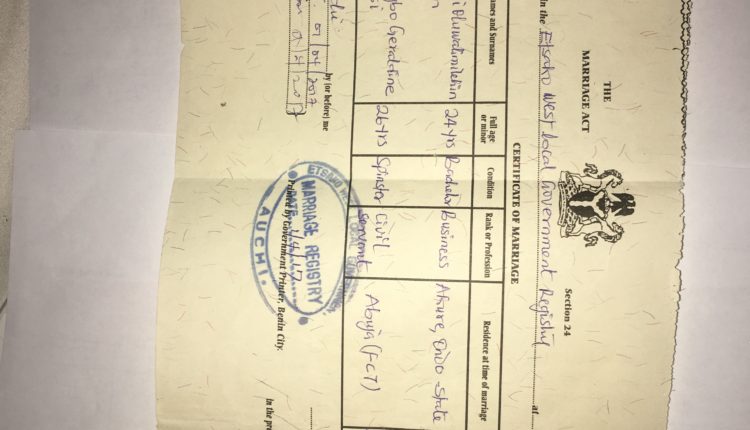 THE
MARRIAGE ACT
Section 24
in the Etsako West Local Government Registry at
CERTIFICATE OF MARRIAGE
ames and Surnames Full age or minor Condition Rank or Profession Residence at time of marriage
Oluwatimilehin 24yrs Bachelor Business Akure, Ondo State
gbo Geraldine 26yrs Spinster Civil Servant Abuja (FCT)
si
by (or before) me
01/04/2017
MARRIAGE REGISTRY
DATE
AUCHI.
Printed by Government Printer, Benin City.
In the pre